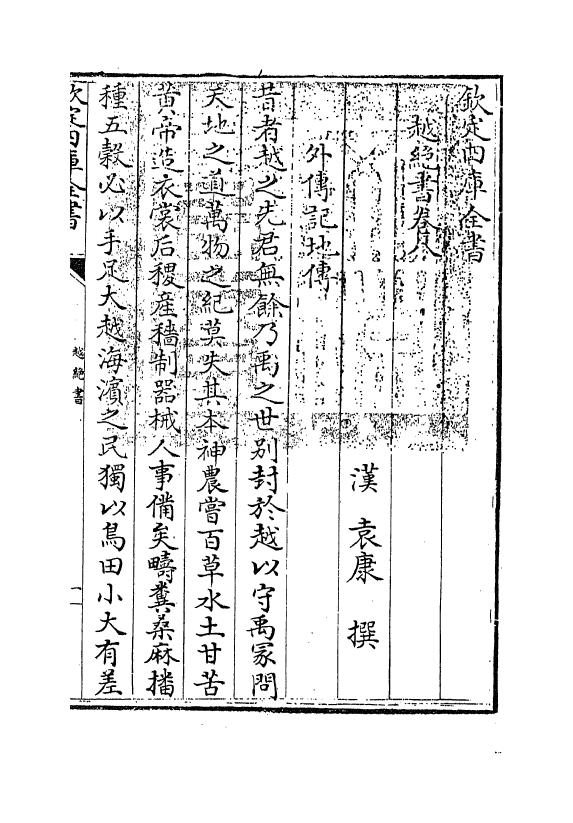 欽定四庫全書
越絶書卷八
漢 袁康 撰
外傳記地傳
昔者越之先君無餘乃禹之世别封於越以守禹冢問
天地之道萬物之紀莫失其本神農嘗百草水土甘苦
黄帝造衣裳后稷産穡制器械人事備矣疇糞桑麻播
種五穀必以手足大越海濵之民獨以鳥田小大有差
欽定四庫全書
越絶書
一